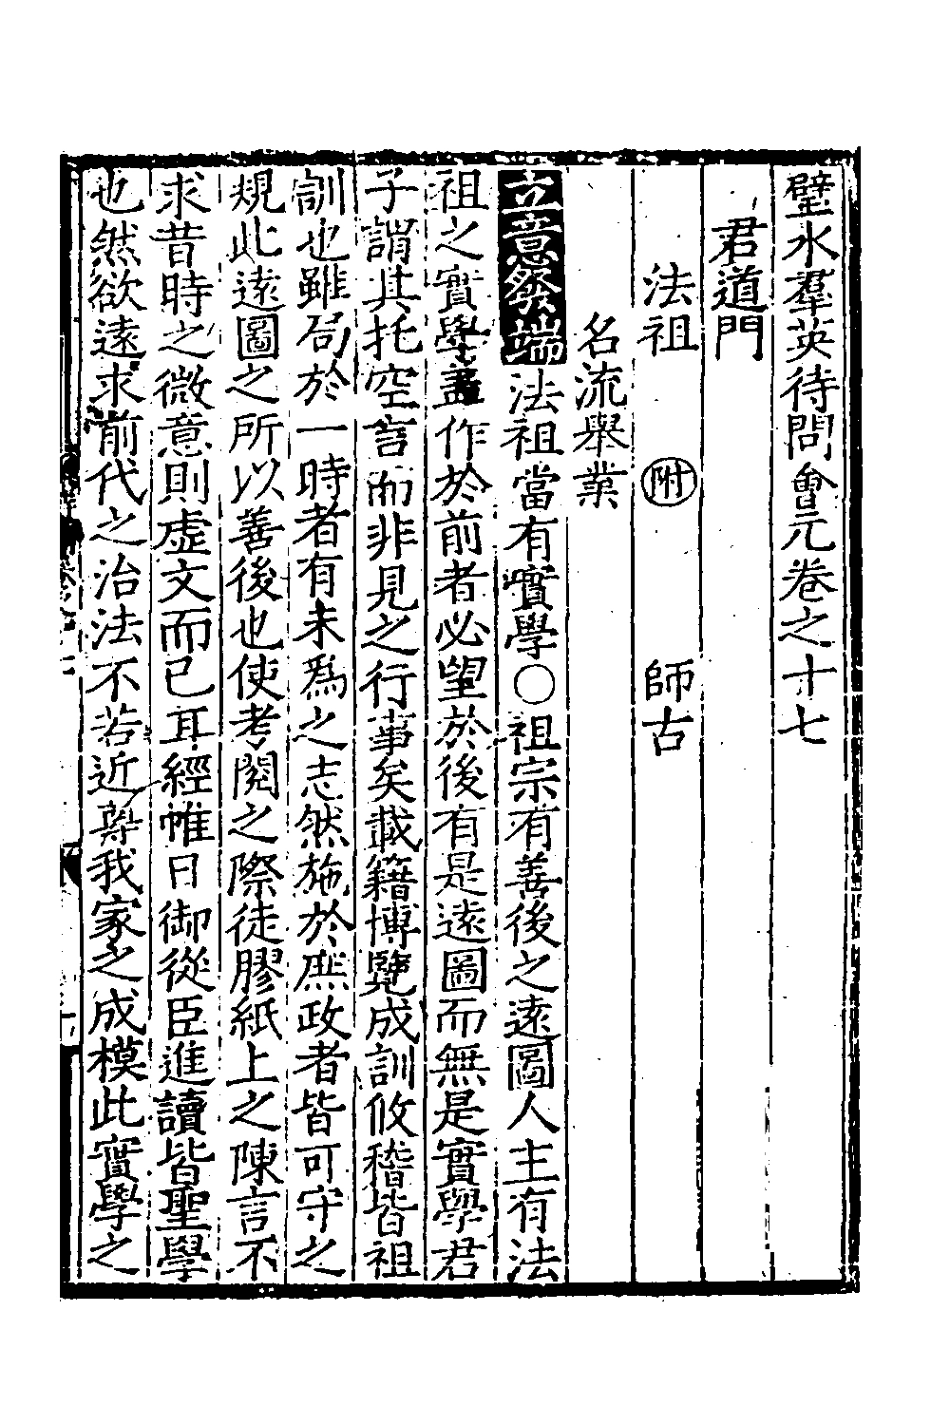 璧水羣英待問會元卷之十七
君道門
法祖　附　師古
名流舉業
立意發端法祖當有實學○祖宗有善後之遠圖人主有法
祖之實學盖作於前者必望於後有是遠圖而無是實學君
子謂其托空言而非見之行事矣載籍博覽成訓攸稽皆祖
訓也雖局於一時者有未爲之志然施於庶政者皆可守之
規此遠圖之所以善後也使考閱之際徒膠紙上之陳言不
求昔時之微意則虛文而已耳經帷日御從臣進讀皆聖學
也然欲遠求前代之治法不若近尋我家之成模此實學之